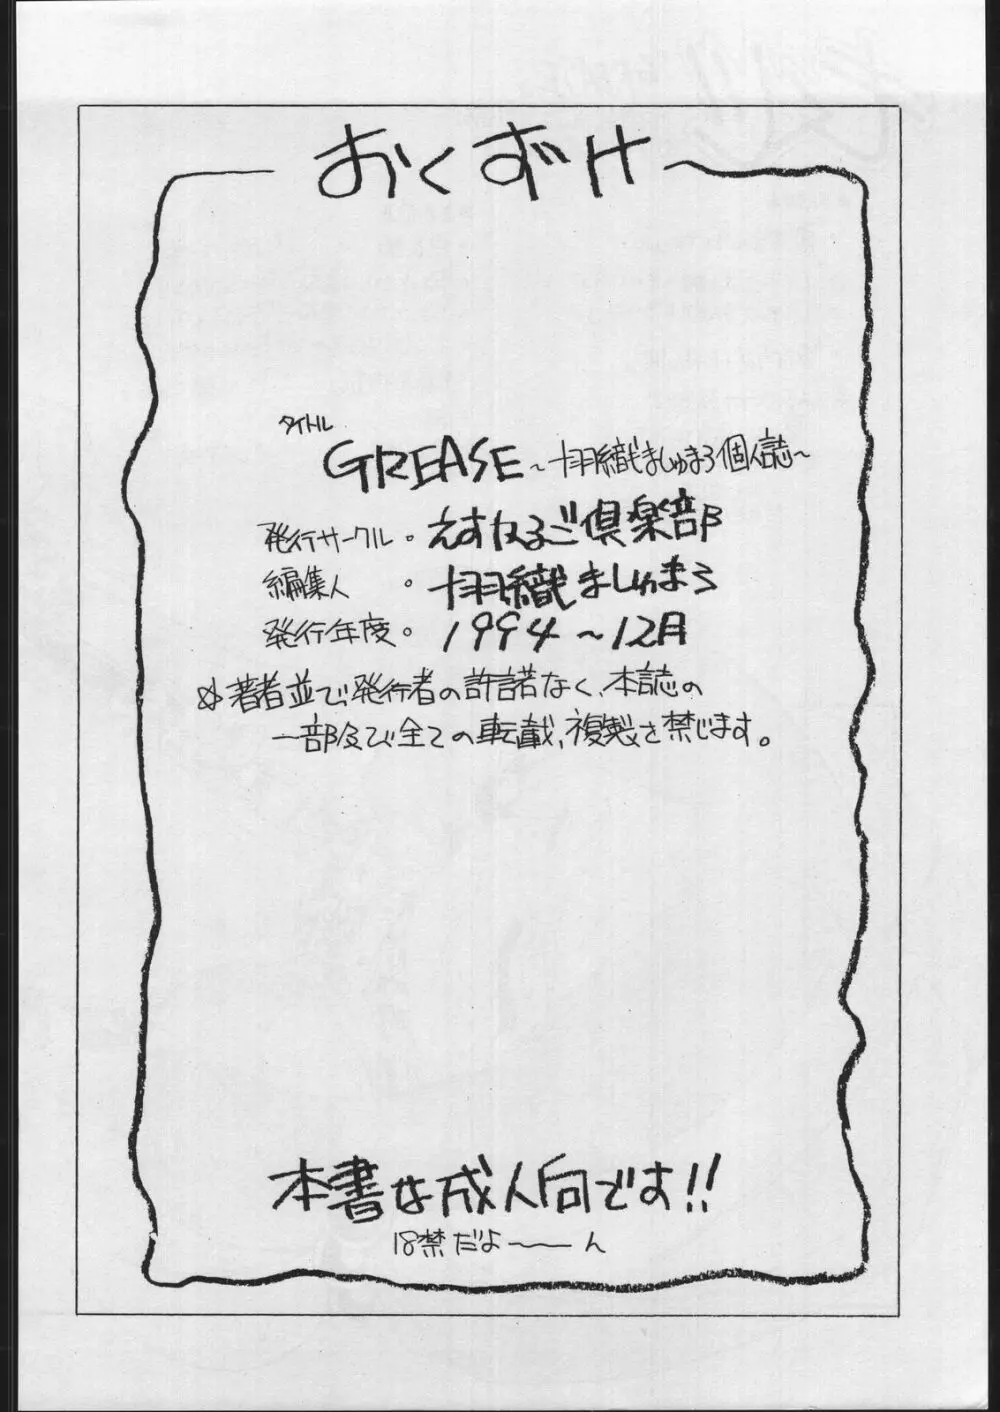 おくずけ
タイトル
GREASE ～羽織ましゅまろ個人誌～
発行サークル。えすかるご倶楽部
編集人。羽織ましゅまろ
発行年度。1994～12月
☆著者並で、発行者の許諾なく、本誌の
一部及び全ての転載、複製を禁じます。
本書は成人向です!!
18禁だよ～ん